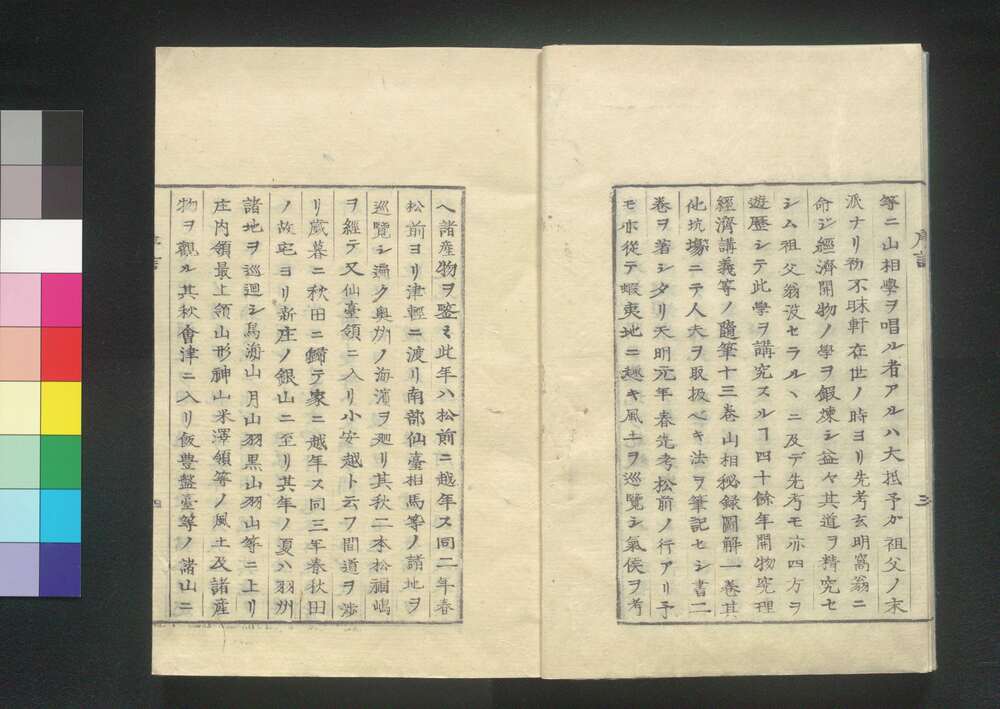 等ニ山相學ヲ唱ル者アルハ大抵予ガ祖父ノ末
派ナリ初不昧軒在世ノ時ヨリ先考玄明窩翁ニ
命ジ經濟開物ノ學ヲ鍛煉シ益々其道ヲ精究セ
シム祖父翁沒セラルヽニ及デ先考モ亦四方ヲ
遊歷シテ此學ヲ講究スルヿ四十餘年開物究理
經濟講義等ノ隨筆十三卷山相秘録圖解一卷其
他坑場ニテ人夫ヲ取扱ベキ法ヲ筆記セシ書二
卷ヲ著シタリ天明元年春先考松前ノ行アリ予
モ亦從テ蝦夷地ニ趣キ風土ヲ巡覽シ氣候ヲ考
序言
三
ヘ諸産物ヲ鑒ミ此年ハ松前ニ越年ス同二年春
松前ヨリ津輕ニ渡リ南部仙臺相馬等ノ諸地ヲ
巡覽シ遍ク奥州ノ海濱ヲ廻リ其秋二本松福嶋
ヲ經テ又仙臺領ニ入リ小安越ト云フ間道ヲ渉
リ歳暮ニ秋田ニ歸テ家ニ越年ス同三年春秋田
ノ故宅ヨリ新庄ノ銀山ニ至リ其年ノ夏ハ羽州
諸地ヲ巡廻シ鳥海山月山羽黒山羽山等ニ上リ
庄内領最上領山形神山米澤領等ノ風土及諸産
物ヲ觀ル其秋會津ニ入リ飯豊盤臺等ノ諸山ニ
四